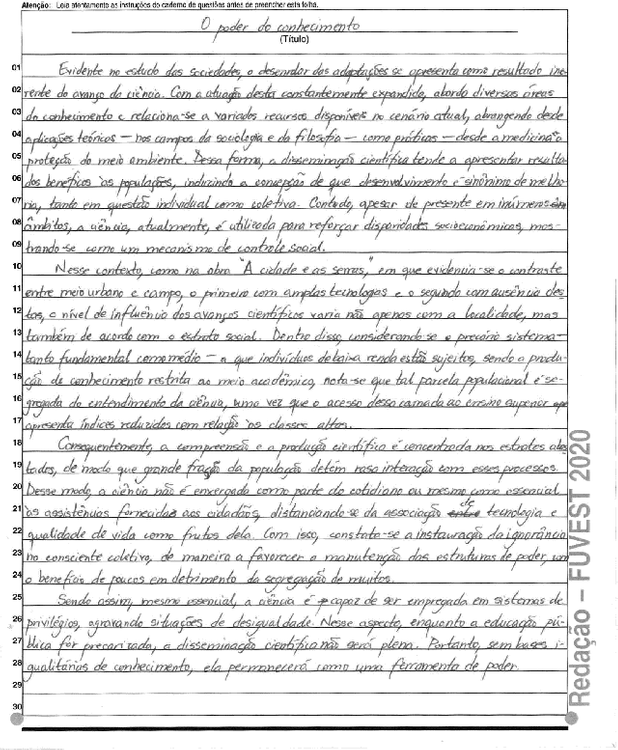 Atenção: Leia atentamente as instruções do caderno de questões antes de preencher esta folha.
O poder do conhecimento
(Título)
01 Evidente no estudo das sociedades, o desenrolar das adaptações se apresenta como resultado ine-
02 rente do avanço da ciência. Com a atuação desta constantemente expandida, aborda diversas áreas
03 do conhecimento e relaciona-se a variados recursos disponíveis no cenário atual, abrangendo desde
04 aplicações teóricas — nos campos da sociologia e da filosofia — como práticas — desde a medicina à
05 proteção do meio ambiente. Dessa forma, a disseminação científica tende a apresentar resulta-
06 dos benéficos às populações, induzindo a concepção de que desenvolvimento é sinônimo de melho-
07 ria, tanto em questão individual como coletiva. Contudo, apesar de presente em inúmeros
08 âmbitos, a ciência, atualmente, é utilizada para reforçar disparidades socioeconômicas, mos-
09 trando-se como um mecanismo de controle social.
10 Nesse contexto, como na obra "A cidade e as serras", em que evidencia-se o contraste
11 entre meio urbano e campo, o primeiro com amplas tecnologias e o segundo com ausência des-
12 tas, o nível de influência dos avanços científicos varia não apenas com a localidade, mas
13 também de acordo com o estrato social. Dentro disso, considerando-se o precário sistema —
14 tanto fundamental como médio — a que indivíduos de baixa renda estão sujeitos, sendo a produ-
15 ção de conhecimento restrita ao meio acadêmico, nota-se que tal parcela populacional é se-
16 gregada do entendimento da ciência, uma vez que o acesso dessa camada ao ensino superior
17 apresenta índices reduzidos com relação às classes altas.
18 Consequentemente, a compreensão e a produção científica é concentrada nos estratos abas-
19 tados, de modo que grande fração da população detém rasa interação com esses processos.
20 Desse modo, a ciência não é enxergada como parte do cotidiano ou mesmo como essencial
21 às assistências fornecidas aos cidadãos, distanciando-se da associação de tecnologia e
22 qualidade de vida como frutos dela. Com isso, constata-se a instauração da ignorância
23 no consciente coletivo, de maneira a favorecer a manutenção das estruturas de poder, com
24 o benefício de poucos em detrimento da segregação de muitos.
25 Sendo assim, mesmo essencial, a ciência é capaz de ser empregada em sistemas de
26 privilégios, agravando situações de desigualdade. Nesse aspecto, enquanto a educação pú-
27 blica for precarizada, a disseminação científica não será plena. Portanto, sem bases i-
28 gualitárias de conhecimento, ela permanecerá como uma ferramenta de poder.
29
30
Redação – FUVEST 2020